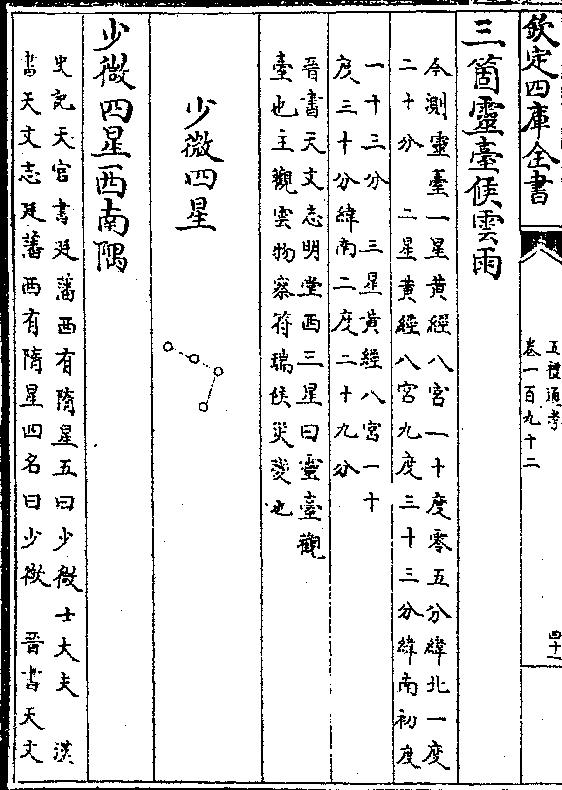 欽定四庫全書
五禮通考
卷一百九十二
四十一
三箇靈臺候雲雨
今測靈臺一星黃經八宮一十度零五分緯北一度
二十分　二星黃經八宮九度三十三分緯南初度
一十三分　三星黃經八宮一十
度三十分緯南二度二十九分
晉書天文志明堂西三星曰靈臺觀
臺也主觀雲物察符瑞候災變也
少微四星
少微四星西南隅
史記天官書廷藩西有隋星五曰少微士大夫　漢
書天文志廷藩西有隋星四名曰少微　晉書天文